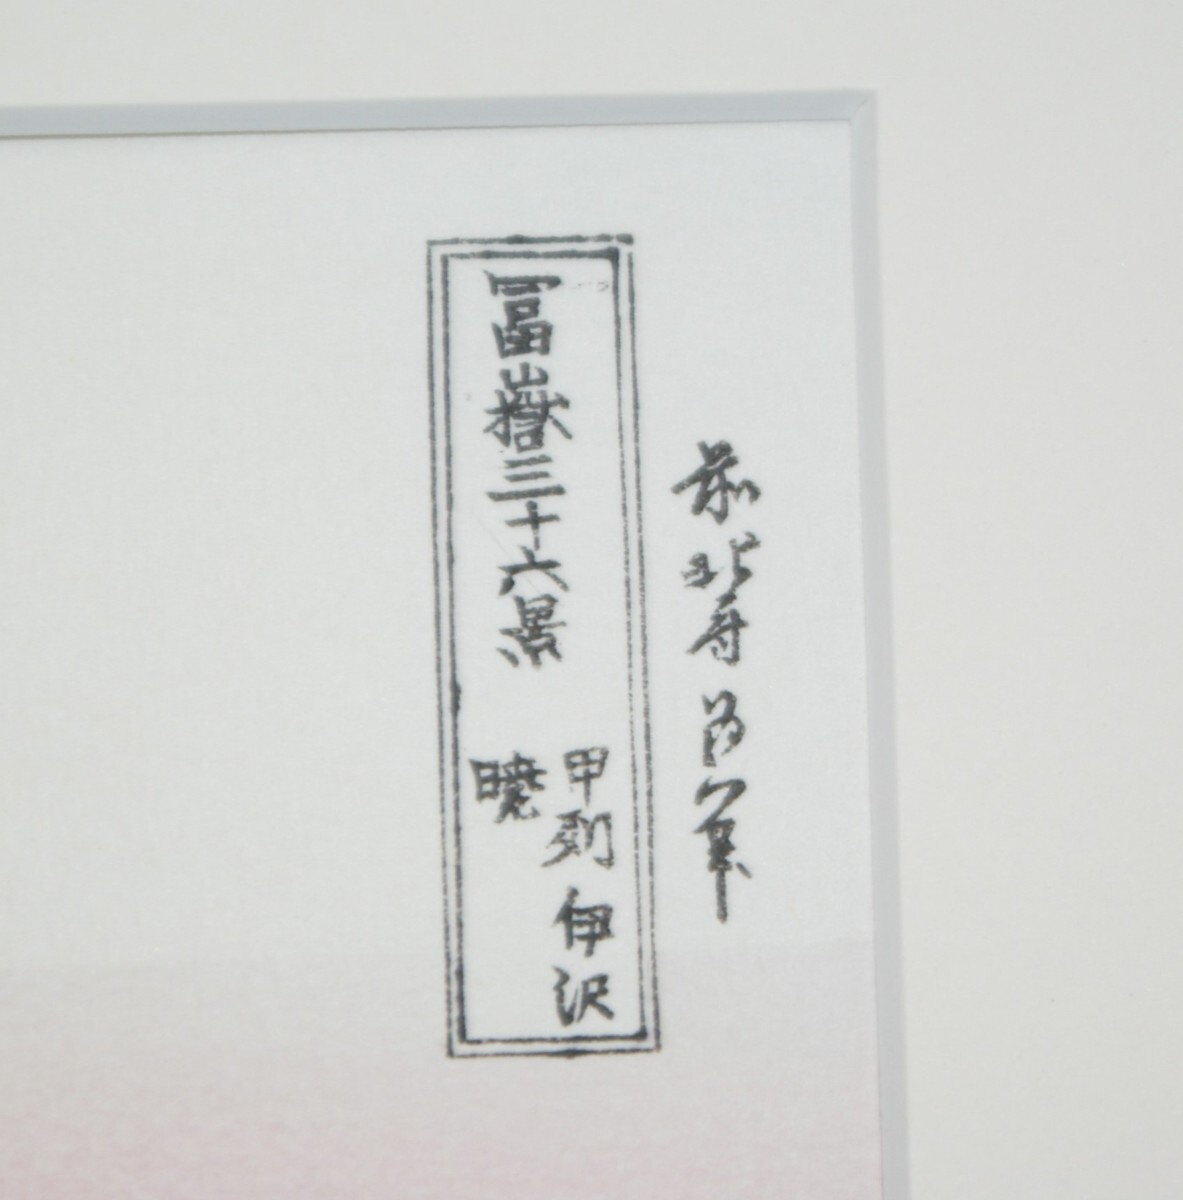 前北斎為一筆
冨嶽三十六景
甲州
伊沢
暁